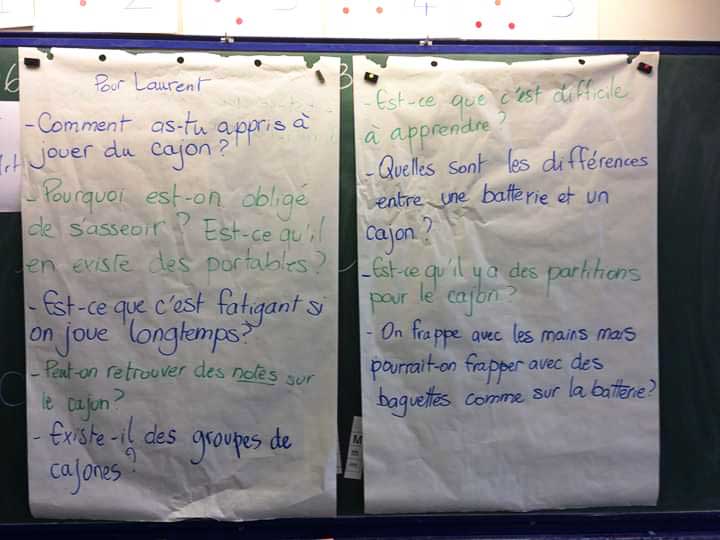 Pour Laurent
- Comment as-tu appris à
jouer du cajon?
- Pourquoi est-on obligé
de s'asseoir? Est-ce qu'il
en existe des portables?
- Est-ce que c'est fatigant si
on joue longtemps?
- Peut-on retrouver des notes sur
le cajon?
- Existe-il des groupes de
cajones?
- Est-ce que c'est difficile
à apprendre?
- Quelles sont les différences
entre une batterie et un
cajon?
- Est-ce qu'il y a des partitions
pour le cajon?
- On frappe avec les mains mais
pourrait-on frapper avec des
baguettes comme sur la batterie?